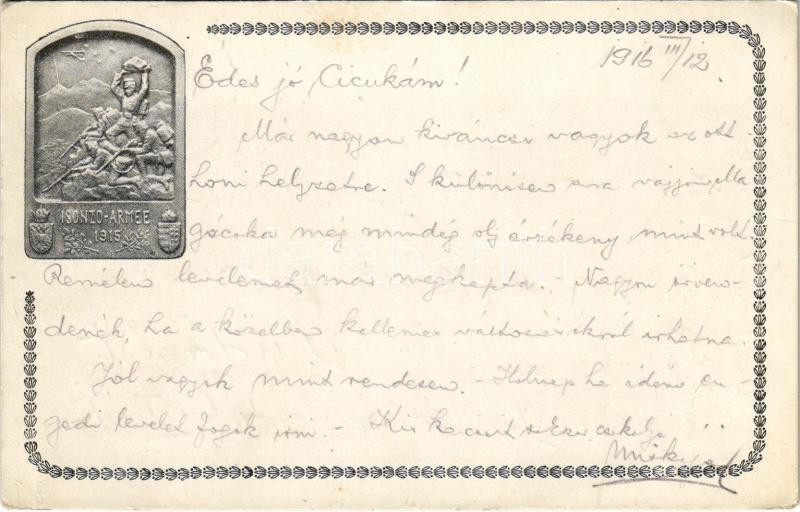 1916 III/12.
Édes jó Cicukám!
ISONZO-ARMEE
1915
Már nagyon kiváncsi vagyok az ott
honi helyzetre. S különösen arra vajjon Ma
gácska még mindég olj érzékeny mint volt.
Remélem levelemet már megkapta. - Nagyon örven-
denék, ha a közelben kellemes változásokról irhatna.
Jól vagyok mint rendesen. - Holnap ha időm en-
gedi levelet fogok irni. - Kis kacsóit csókolja